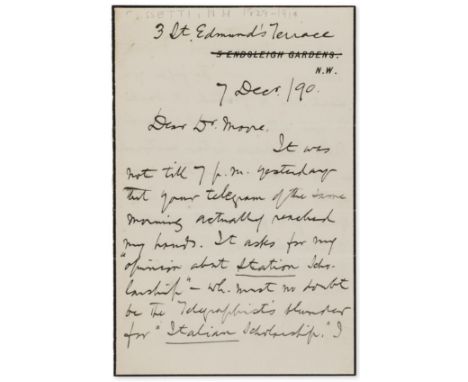 3 St. Edmund's Terrace
5 ENDSLEIGH GARDENS.
N.W.
7 Decr./90.
Dear Dr. Moore,
It was
not till 7 p.m. yesterday
that your telegram of the same
morning actually reached
my hands. It asks for my
"opinion about Station Scho-
larship" – wh. must no doubt
be the Telegraphist's blunder
for "Italian Scholarship." I